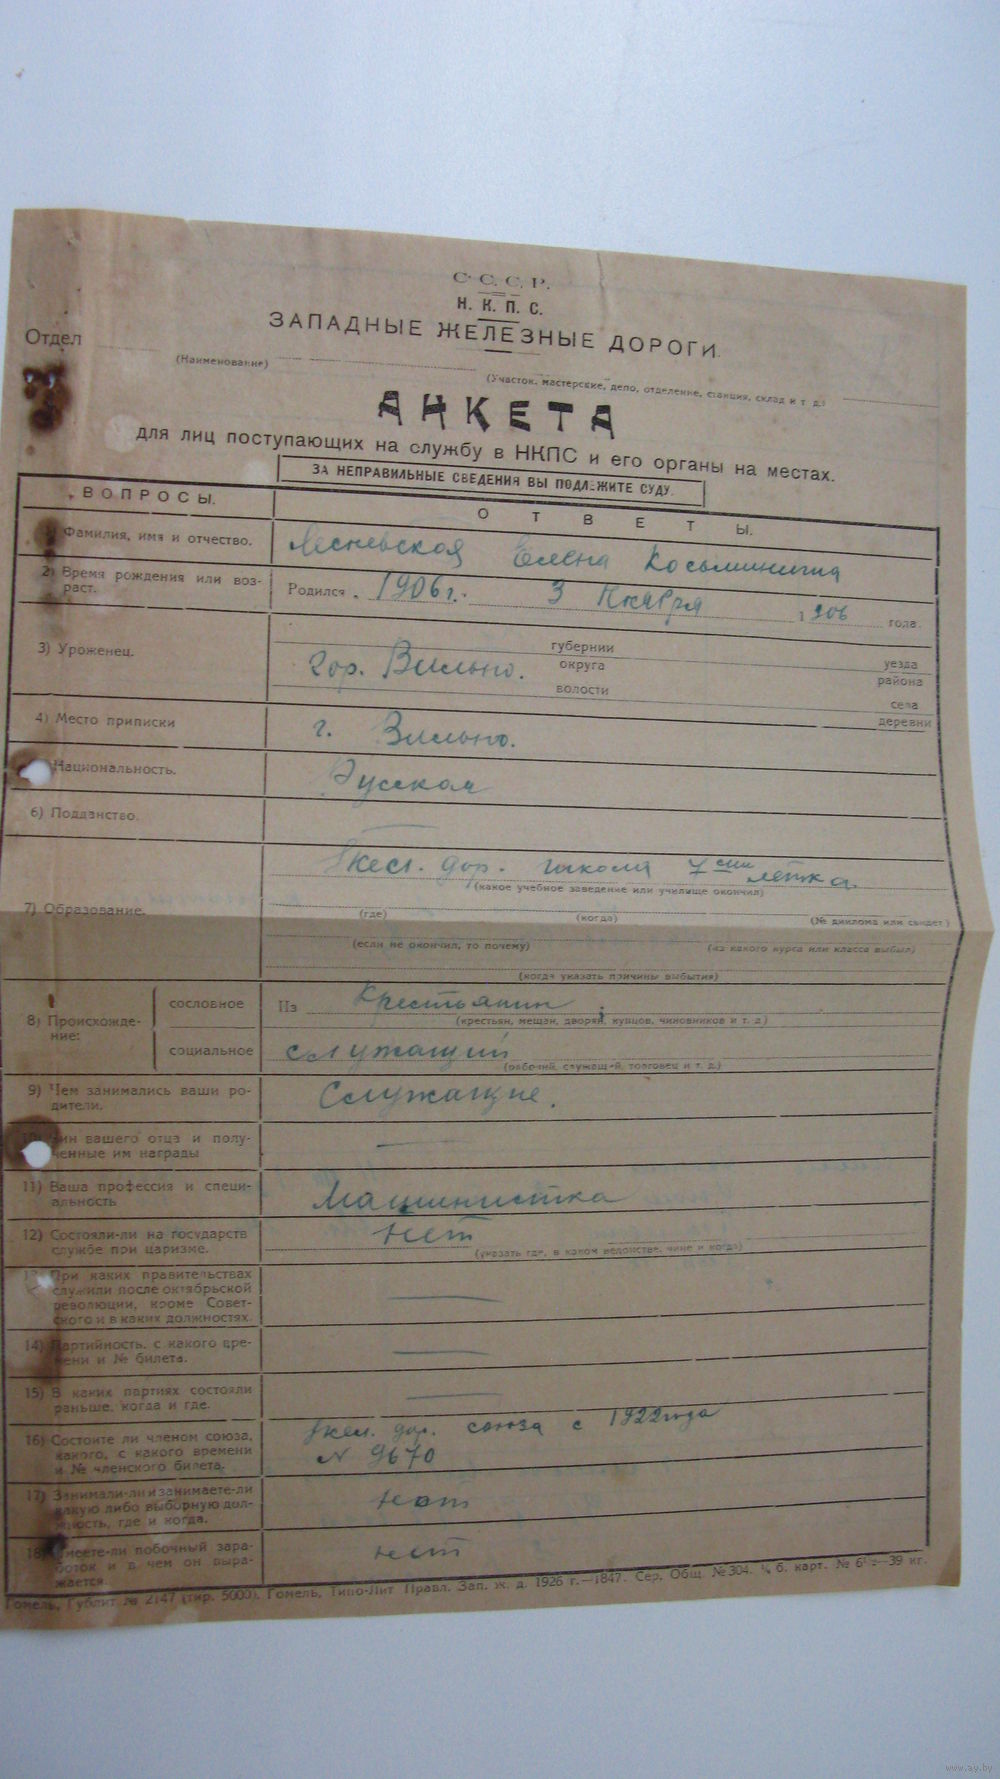 С. С. С. Р.
Н. К. П. С.
ЗАПАДНЫЕ ЖЕЛЕЗНЫЕ ДОРОГИ.
Отдел
(Наименование)
(Участок, мастерские, депо, отделение, станция, склад и т. д.)
АНКЕТА
для лиц поступающих на службу в НКПС и его органы на местах.
ЗА НЕПРАВИЛЬНЫЕ СВЕДЕНИЯ ВЫ ПОДЛЕЖИТЕ СУДУ.
ВОПРОСЫ.
ОТВЕТЫ.
Фамилия, имя и отчество.
Елена
2) Время рождения или воз-
раст.
Родился 1906 г. 3 1906 года.
3) Уроженец.
гор. Вильно.
губернии
округа
волости
уезда
района
села
деревни
4) Место приписки
г. Вильно.
Национальность.
Русская
6) Подданство.
—
7) Образование.
дор. школа 7 летка
(какое учебное заведение или училище окончил)
(где) (когда) (№ диплома или свидет.)
(если не окончил, то почему) (из какого курса или класса выбыл)
(когда указать причины выбытия)
8) Происхожде-
ние:
сословное
Из Крестьянин
(крестьян, мещан, дворян, купцов, чиновников и т. д.)
социальное
служащий
(рабочий, служащий, торговец и т. д.)
9) Чем занимались ваши ро-
дители.
Служащие.
10) Чин вашего отца и полу-
ченные им награды
—
11) Ваша профессия и специ-
альность
Машинистка
12) Состояли-ли на государств
службе при царизме.
нет
(указать где, в каком ведомстве, чине и когда)
13) При каких правительствах
служили после октябрьской
революции, кроме Совет-
ского и в каких должностях.
—
14) Партийность, с какого вре-
мени и № билета.
—
15) В каких партиях состояли
раньше, когда и где.
—
16) Состоите ли членом союза,
какого, с какого времени
и № членского билета.
дор. союза с 1922 года
N 9670
17) Занимали-ли и занимаете-ли
какую либо выборную дол-
жность, где и когда.
нет
18) Имеете-ли побочный зара-
боток и в чем он выра-
жается.
нет
Гомель, Гублит № 2147 (тир. 5000). Гомель, Типо-Лит Правл. Зап. ж. д. 1926 г.—1847. Сер. Общ. № 304. б. карт. —39 кг.
www.ay.by